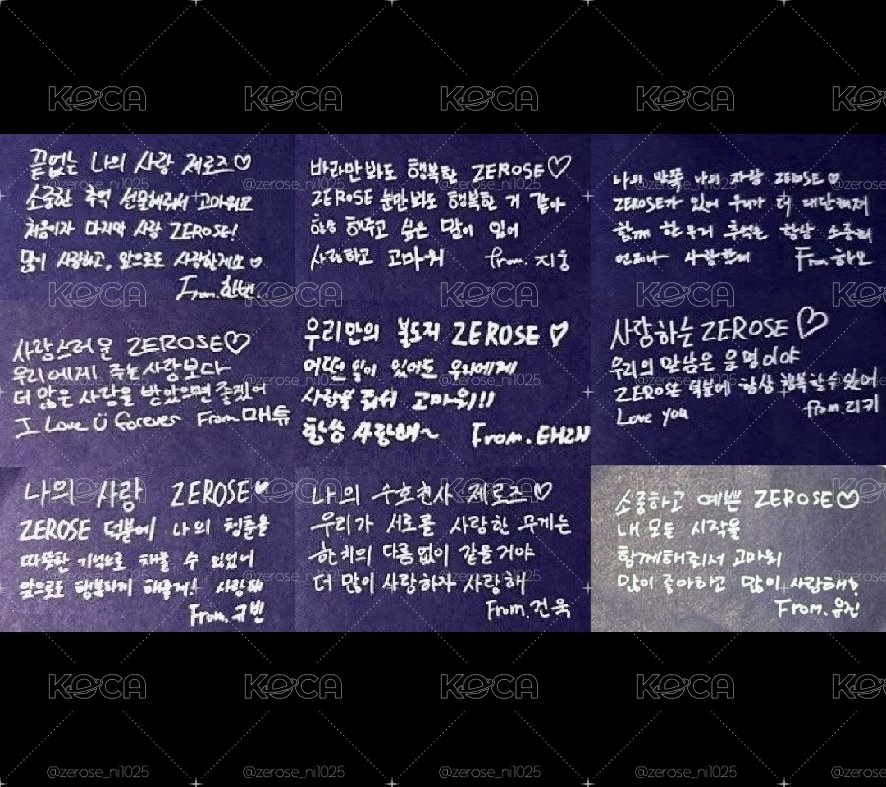 KCCA KCCA KCCA KCCA KCCA
끝없는 나의 사랑 제로즈♡
소중한 추억 선물해줘서 고마워요
처음이자 마지막 사랑 ZEROSE!
많이 사랑하고, 앞으로도 사랑할게요♡
From. 한빈.
바라만봐도 행복한 ZEROSE♡
ZEROSE 눈만봐도 행복한 거 같아
항상 해주고 싶은 말이 있어
사랑하고 고마워 from. 지웅
나의 만쪽 나의 자랑 ZEROSE♡
ZEROSE가 있어 우리가 더 대단해져
함께 한 우리 추억은 항상 소중해
언제나 사랑한다 From. 하오
사랑스러운 ZEROSE♡
우리에게 주는 사랑보다
더 많은 사랑을 받았으면 좋겠어
I Love Ü forever From 매튜
우리만의 복도지 ZEROSE♡
어떤 일이 있어도 우리에게
사랑을 줘서 고마워!!
항상 사랑해~ From. 태래
사랑하는 ZEROSE♡
우리의 만남은 운명이야
ZEROSE 덕분에 항상 행복할 수 있어
Love you from 리키
나의 사랑 ZEROSE♥
ZEROSE 덕분에 나의 청춘을
따뜻한 기억으로 채울 수 있었어
앞으로도 행복하게 해줄게! 사랑해
From. 규빈
나의 수호천사 제로즈♡
우리가 서로를 사랑한 무게는
한치의 다름없이 같을거야
더 많이 사랑하자 사랑해
From. 건욱
소중하고 예쁜 ZEROSE♡
내 모든 시작을
함께해줘서 고마워
많이 좋아하고 많이 사랑해!
From. 유진
@zerose_ni1025 @zerose_ni1025 @zerose_ni1025 @zerose_ni1025